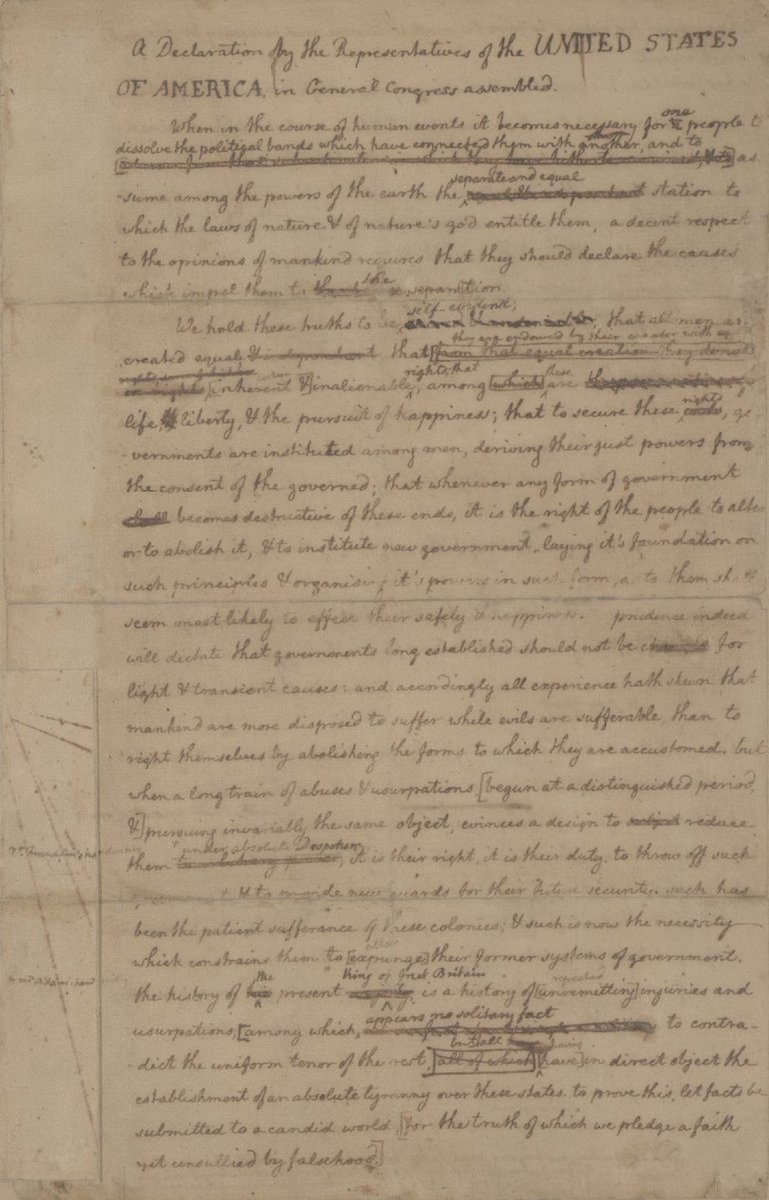 A Declaration by the Representatives of the UNITED STATES
OF AMERICA, in General Congress assembled.
When in the course of human events it becomes necessary for one people to
dissolve the political bands which have connected them with another, and to
as
separate and equal
-sume among the powers of the earth the station to
which the laws of nature & of nature's god entitle them, a decent respect
to the opinions of mankind requires that they should declare the causes
the
which impel them to separation.
self-evident;
We hold these truths to be that all men are
they are endowed by their creator with
created equal that from that equal creation they derive
rights; that these
[inherent & inalienable among which are
rights
life, liberty, & the pursuit of happiness; that to secure these go-
-vernments are instituted among men, deriving their just powers from
the consent of the governed; that whenever any form of government
shall becomes destructive of these ends, it is the right of the people to alter
or to abolish it, & to institute new government, laying it's foundation on
such principles & organising it's powers in such form, as to them shall
seem most likely to effect their safety & happiness. prudence indeed
will dictate that governments long established should not be changed for
light & transient causes: and accordingly all experience hath shewn that
mankind are more disposed to suffer while evils are sufferable, than to
right themselves by abolishing the forms to which they are accustomed. but
when a long train of abuses & usurpations [begun at a distinguished period,
&] pursuing invariably the same object, evinces a design to reduce
under absolute Despotism
them it is their right, it is their duty, to throw off such
& to provide new guards for their future security. such has
been the patient sufferance of these colonies; & such is now the necessity
alter
which constrains them to [expunge] their former systems of government.
the king of Great Britain repeated
the history of his present is a history of [unremitting] injuries and
appears no solitary fact
usurpations, [among which, to contra-
but all having
-dict the uniform tenor of the rest, all of which [have] in direct object the
establishment of an absolute tyranny over these states. to prove this, let facts be
submitted to a candid world, [for the truth of which we pledge a faith
yet unsullied by falsehood]
Dr. Franklin's handwriting
Mr Adams' hand